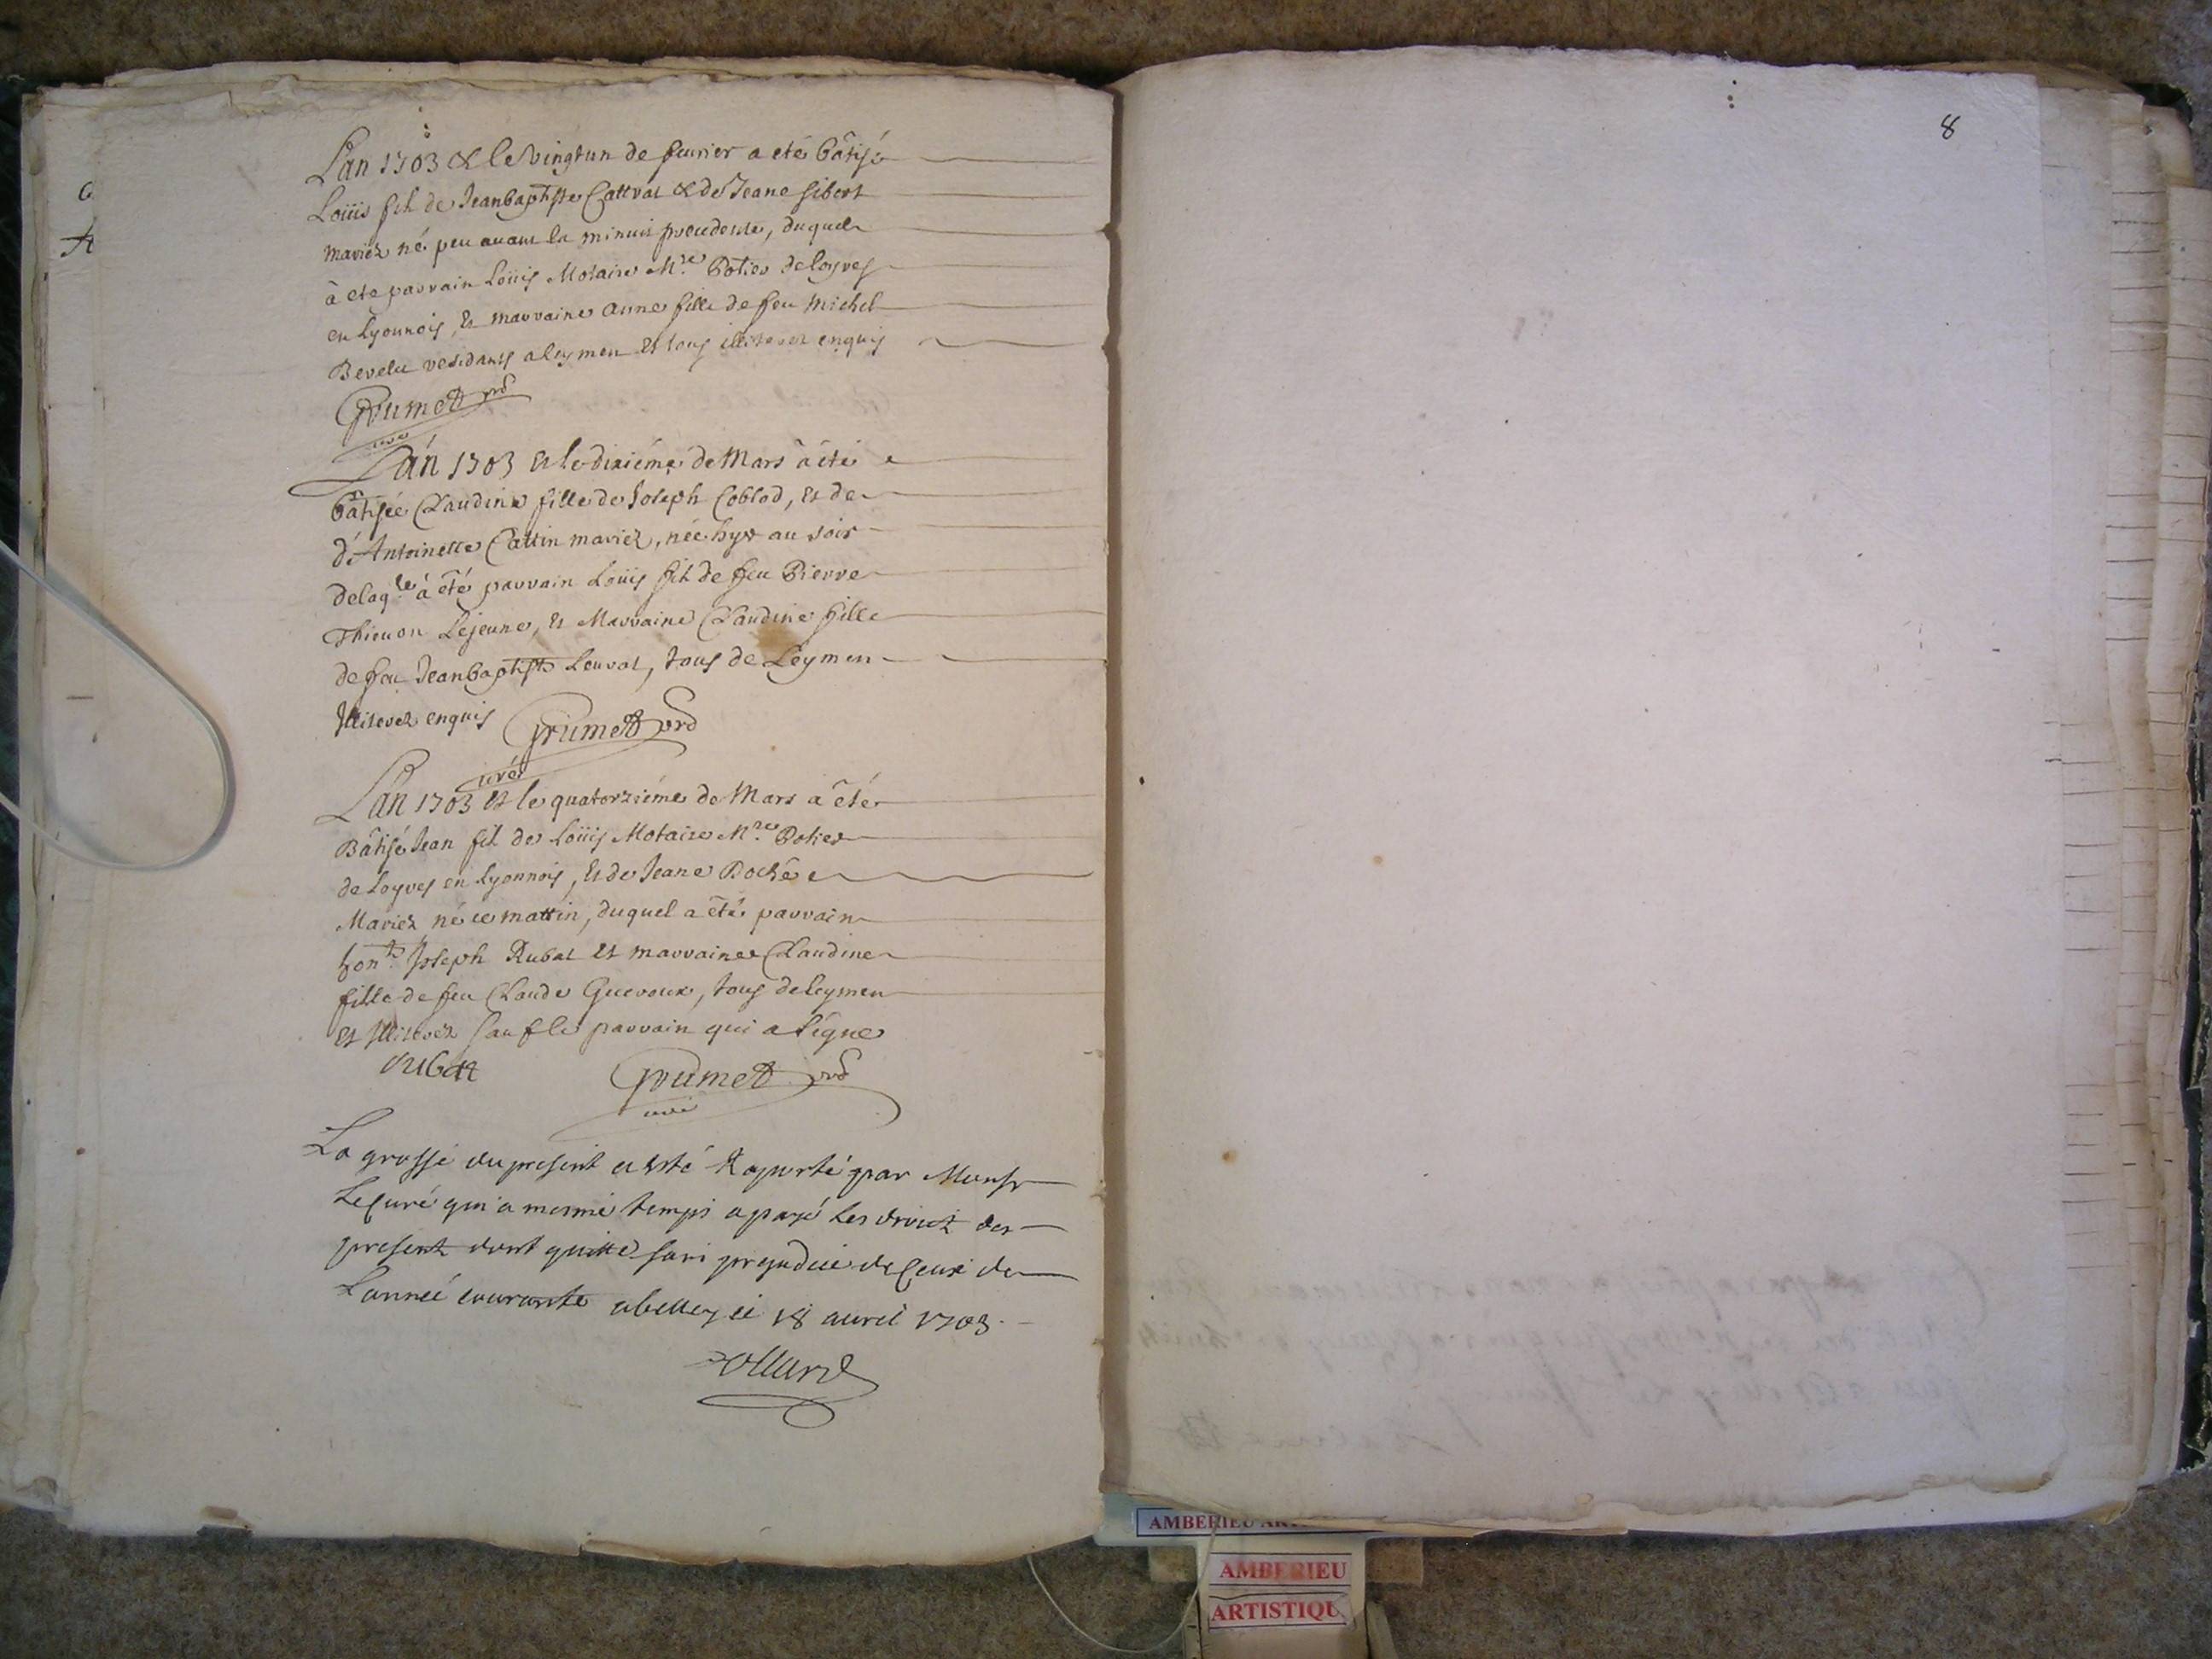 Lan 1703 & le vingtun de feurier a eté bâtisé
Loüis fil de Jeanbaptiste Cattrat & de Jeane Gibert
mariéz né peu auant la minuit precedente, duquel
à eté parrain Loüis Motaire Mre Potier de Loyres
en Lyonnois, et marraine anne fille de feu Michel
Berelu residants a leymen et tous illiterez enquis
Grumet prd
curé
Lán 1703 et le dixiéme de Mars à été
bâtisée Claudine fille de Joseph Coblod, et de
d'Antoinette Cattin mariéz, née hyer au soir
delaqle à été parrain Loüis fil de feu Pierre
Thieuon Lejeune, et Marraine Claudine fille
de feu Jeanbaptiste Louvat, tous de Leymen
Illiterez enquis Grumet prd
curé
Lán 1703 et le quatorziéme de Mars a êté
Bâtisé Jean fil de Loüis Motaire Mre Potier
de Loyres en Lyonnois, et de Jeane Poché
Mariéz né ce mattin, duquel a êté parrain
hont Joseph Rubat et marraine Claudine
fille de feu Claude Gueroux, tous de leymen
et Illiterez sauf le parrain qui a signe
rubat Grumet prd
curé
La grosse du present a esté Raporté par Monsr
Le Curé qui a mesme temps a payé les droict des
present dont quitte sans prejudice de ceux de
Lannée courante abelley ce 18 auril 1703.
8
AMBERIEU
AMBERIEU
ARTISTIQU